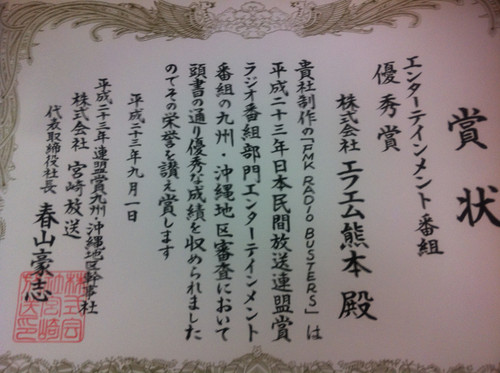 賞状
エンターテインメント番組
優秀賞
株式会社 エフエム熊本 殿
貴社制作の「FMK RADIO BUSTERS」は
平成二十三年日本民間放送連盟賞
ラジオ番組部門エンターテインメント
番組の九州・沖縄地区審査において
頭書の通り優秀な成績を収められました
のでその栄誉を讃え賞します
平成二十三年九月一日
平成二十三年連盟賞九州・沖縄地区幹事社
株式会社 宮崎放送
代表取締役社長 春山豪志